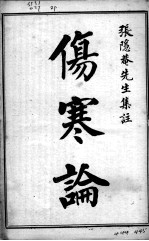 張隱菴先生集註
傷寒論